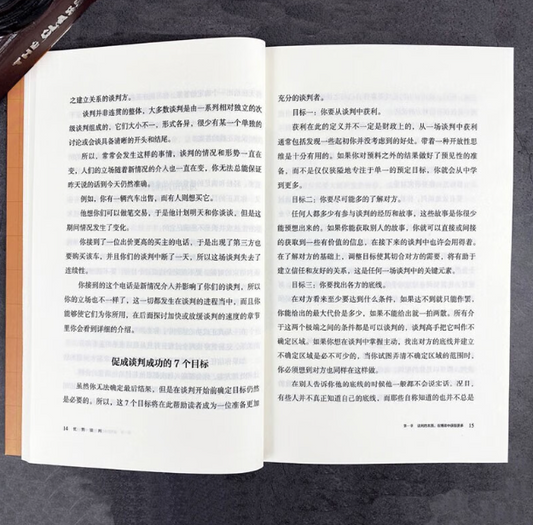 之建立关系的谈判方。
谈判并非连贯的整体，大多数谈判是由一系列相对独立的次
级谈判组成的，它们大小不一，形式各异，很少有某一个单独的
讨论或会谈具备清晰的开头和结尾。
所以，常常会发生这样的事情，谈判的情况和形势一直在
变，人们的立场随着新情况的介入也一直在变，你无法总能保证
昨天说的话到今天仍然准确。
例如，你有一辆汽车出售，而有人则想买它。
他想你们可以做笔交易，于是他计划明天和你谈谈，但是这
期间情况发生了变化。
你接到了一位出价更高的买主的电话，于是出现了第三方也
要购买该车，并且你们的谈判中断了一天，所以这场谈判失去了
连续性。
你接到的这个电话是新情况介入并影响了你们的谈判，所以
你的立场也不一样了，这一切都发生在谈判的进程当中，而且你
能够使它们为你所用，在后面探讨加快或放缓谈判的速度的章节
里你会看到详细的介绍。
促成谈判成功的7个目标
虽然你无法确定最后结果，但是在谈判开始前确定目标仍然
是必要的。所以，这7个目标将在此帮助读者成为一位准备更加
14
充分的谈判者。
目标一：你要从谈判中获利。
获利在此的定义并不一定是财政上的，从一场谈判中获利
通常包括发现一些起初你并没考虑到的好处。带着一种开放性思
维是十分有用的。如果你对预料之外的结果做好了预见性的准
备，而不是仅仅狭隘地专注于单一的预定目标，你就会从中学
到更多。
目标二：你要尽可能多的了解对方。
任何人都多少有参与谈判的经历和故事，这些故事是你很少
能预想出来的。如果你能获取别人的故事，你就可以直接或间接
的获取到一些有价值的信息，在接下来的谈判中也许会用得着。
在了解对方的基础上，调整目标使其切合对方的需要，将有助于
建立信任和友好的关系，这是任何一场谈判中的关键元素。
目标三：你要找出各方的底线。
在对方看来至少要达到什么条件，如果达不到就只能作罢，
你能给出的最大代价是多少，如果不能给出就一拍两散。所有介
于这两个极端之间的条件都是可以谈判的，谈判高手把它叫作不
确定区域。如果你想在谈判中掌握主动，找出对方的底线并建立
不确定区域是必不可少的，当你试图弄清不确定区域的范围时，
你必须想到对方也同样在这样做。
在别人告诉你他的底线的时候他一般都不会说实话，况且，
有些人并不真正知道自己的底线，而那些自称知道的也并不总是
15